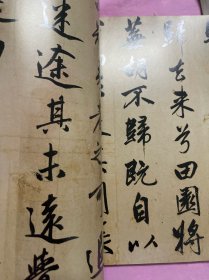 歸去来兮田園將
蕪胡不歸既自以
迷途其未遠覺